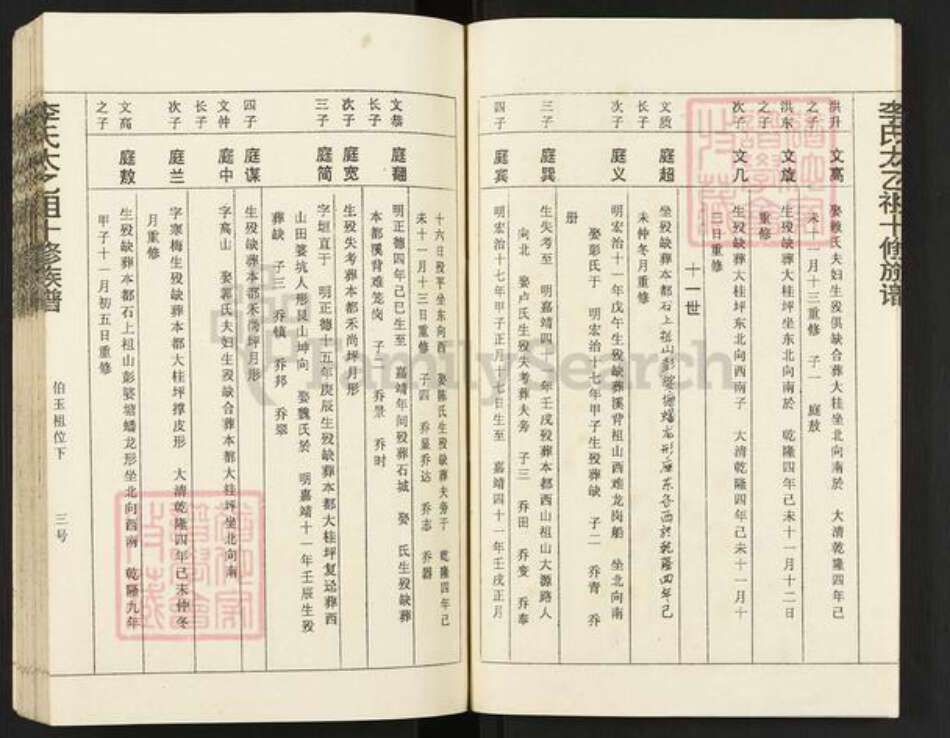 李氏太乙祖十修族谱
洪升
之子
文高
娶赖氏夫妇生殁俱缺合葬大桂坐北向南於 大清乾隆四年己
未十一月十三重修 子一 庭敖
洪东
之子
文旋
生殁缺葬大桂坪坐东北向南於 乾隆四年己未十一月十二日
重修
次子
文几
生殁缺葬大桂坪东北向西南子 大清乾隆四年己未十一月十
三日重修
十一世
文质
长子
庭超
未仲冬月重修
次子
庭义
明宏治十一年戊午生殁缺葬溪背祖山西难龙岗船 坐北向南
娶彭氏于 明宏治十七年甲子生殁葬缺 子二 乔青 乔
册
三子
庭巽
生失考至 明嘉靖四十一年壬戌殁葬本都西山祖山大源路人
向北 娶卢氏生殁失考葬夫旁 子三 乔田 乔变 乔泰
四子
庭宾
明宏治十七年甲子正月十七日生至 嘉靖四十一年壬戌正月
十六日殁平坐东向西 娶陈氏生殁缺葬夫旁于 乾隆四年己
未十一月十三日重修 子四 乔显乔达 乔志 乔器
文恭
长子
庭翻
明正德四年己巳生至 嘉靖年间殁葬石城 娶 氏生殁缺葬
本都溪背难笼岗 子二 乔景 乔时
次子
庭宽
生殁失考葬本都禾尚坪月形
三子
庭简
字垣直于 明正德十五年庚辰生殁缺葬本都大桂坪复迳葬西
山田婆坑人形艮山坤向 娶魏氏於 明嘉靖十一年壬辰生殁
葬缺 子三 乔镇 乔邦 乔翠
四子
庭谋
生殁缺葬本都禾尚坪月形
文仲
长子
庭中
字高山 娶郭氏夫妇生殁缺合葬本都大桂坪坐北向南
次子
庭兰
字寒梅生殁缺葬本都大桂坪撑皮形 大清乾隆四年己未仲冬
月重修
文高
之子
庭敖
生殁缺葬本都石上祖山彭婆塘蟠龙形坐北向西南 乾隆九年
甲子十一月初五日重修
伯玉祖位下 三号
李氏太乙祖十修族谱
FamilySearch